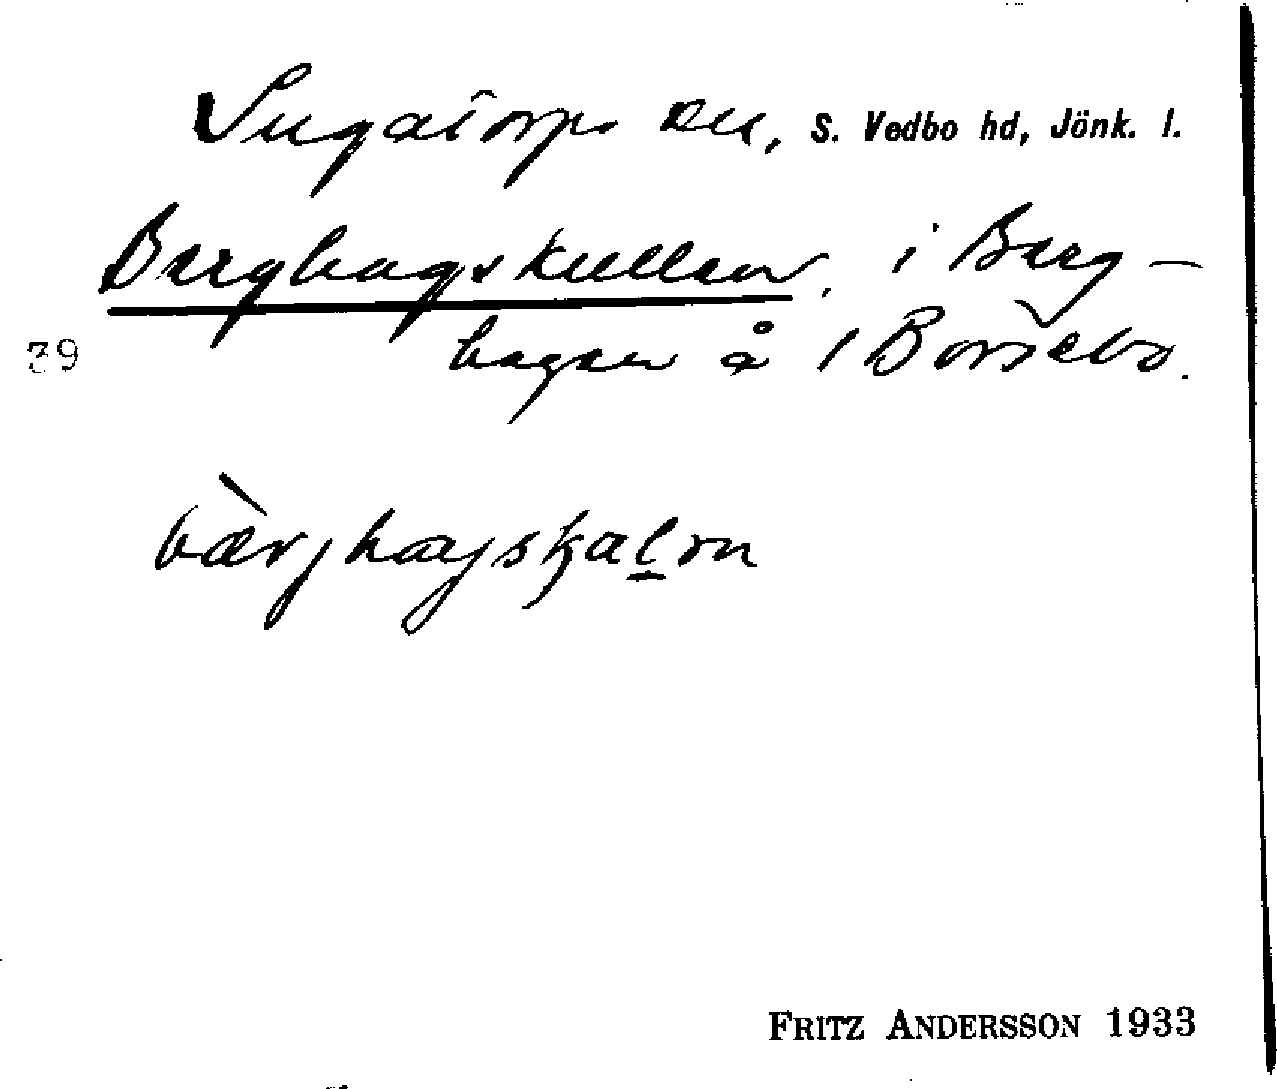 Ingatorps sn, S. Vedbo hd, Jönk. l.
Berghagskullen, i Berg-
39 hagen å / Borsebo.
bærjhagskal̲ən
FRITZ ANDERSSON 1933